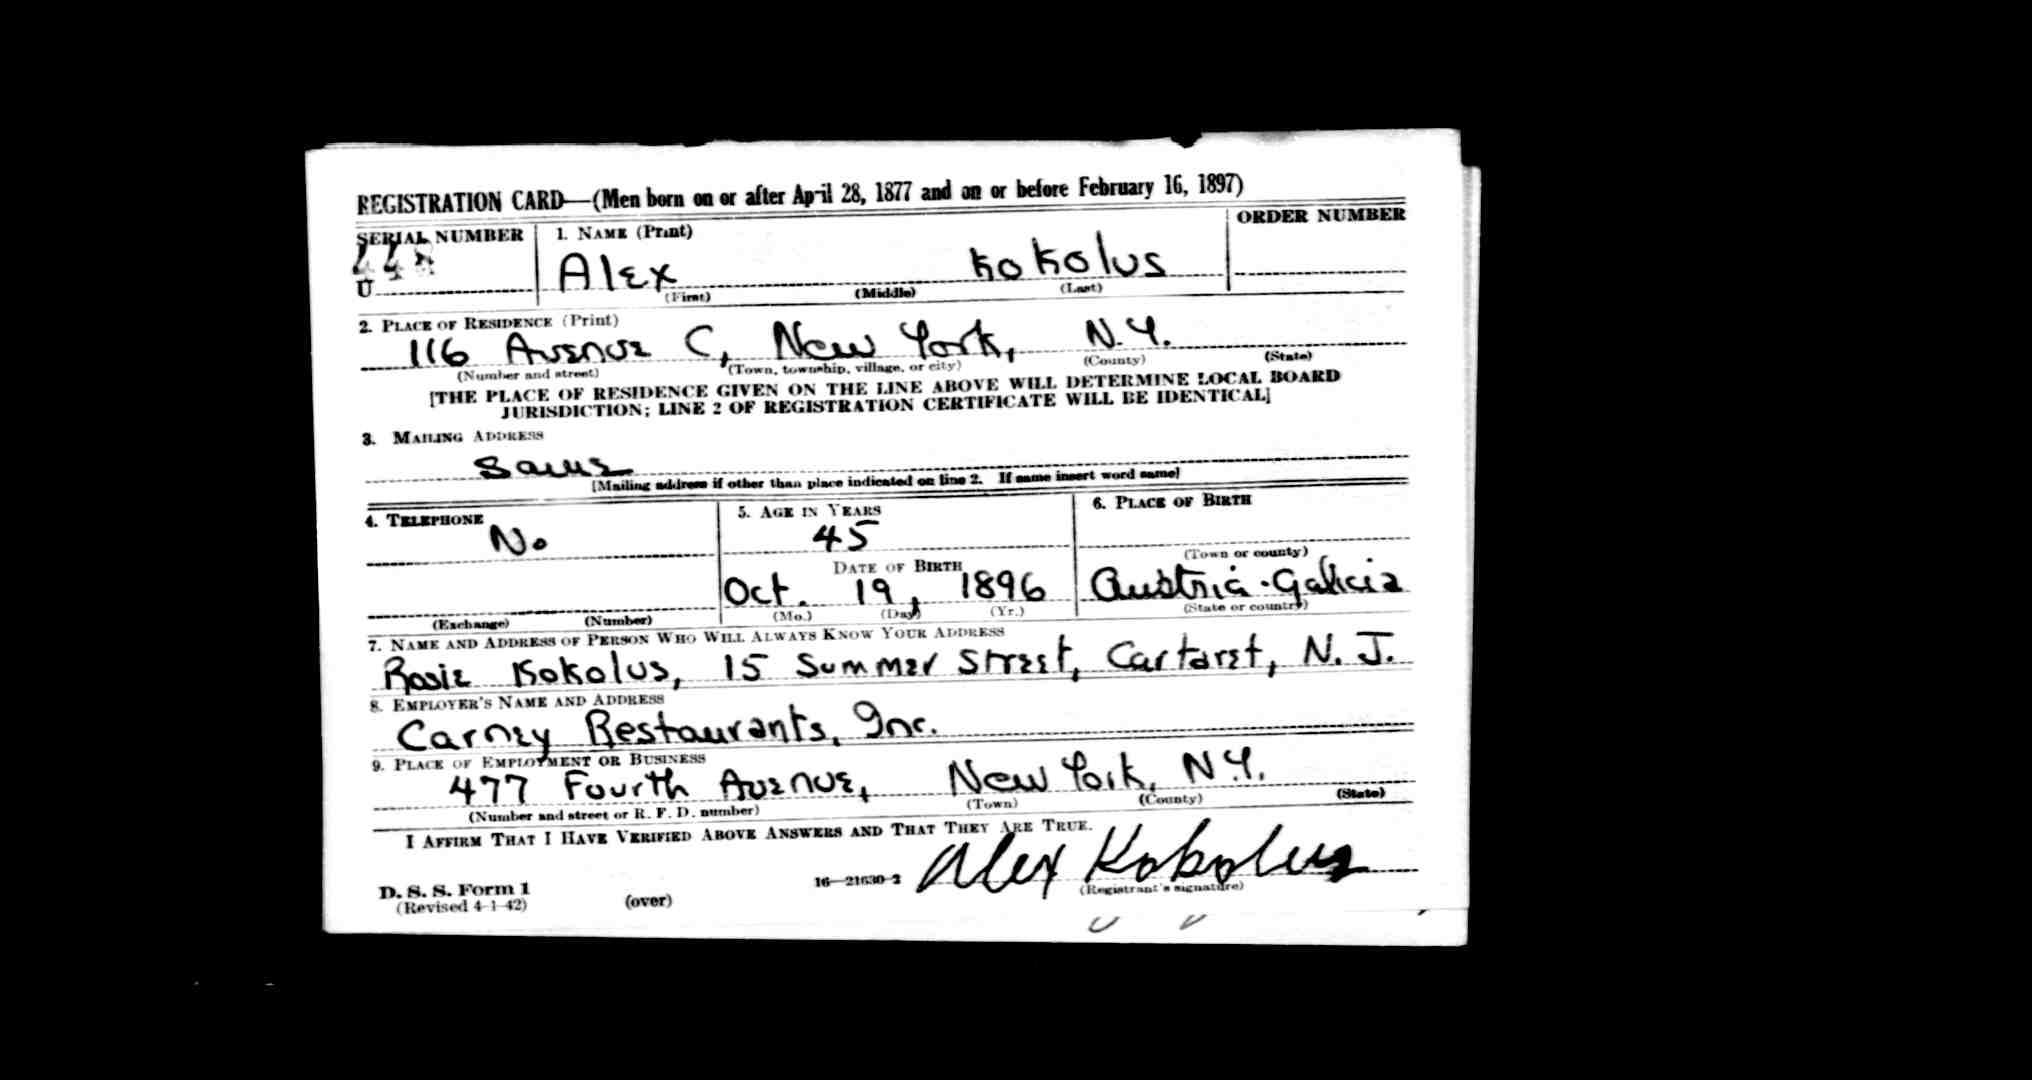 REGISTRATION CARD—(Men born on or after April 28, 1877 and on or before February 16, 1897)
SERIAL NUMBER
1. NAME (Print)
ORDER NUMBER
U
Alex Kokolus
(First) (Middle) (Last)
2. PLACE OF RESIDENCE (Print)
116 Avenue C, New York, N.Y.
(Number and street) (Town, township, village, or city) (County) (State)
[THE PLACE OF RESIDENCE GIVEN ON THE LINE ABOVE WILL DETERMINE LOCAL BOARD
JURISDICTION; LINE 2 OF REGISTRATION CERTIFICATE WILL BE IDENTICAL]
3. MAILING ADDRESS
Same
[Mailing address if other than place indicated on line 2. If same insert word same]
4. TELEPHONE
No
(Exchange) (Number)
5. AGE IN YEARS
45
DATE OF BIRTH
Oct. 19, 1896
(Mo.) (Day) (Yr.)
6. PLACE OF BIRTH
(Town or county)
Austria-Galicia
(State or country)
7. NAME AND ADDRESS OF PERSON WHO WILL ALWAYS KNOW YOUR ADDRESS
Rosie Kokolus, 15 Summer Street, Cartaret, N. J.
8. EMPLOYER'S NAME AND ADDRESS
Carney Restaurants, Inc.
9. PLACE OF EMPLOYMENT OR BUSINESS
477 Fourth Avenue, New York, N.Y.
(Number and street or R. F. D. number) (Town) (County) (State)
I AFFIRM THAT I HAVE VERIFIED ABOVE ANSWERS AND THAT THEY ARE TRUE.
Alex Kokolus
D. S. S. Form 1 16—21630-2 (Registrant's signature)
(Revised 4-1-42) (over)